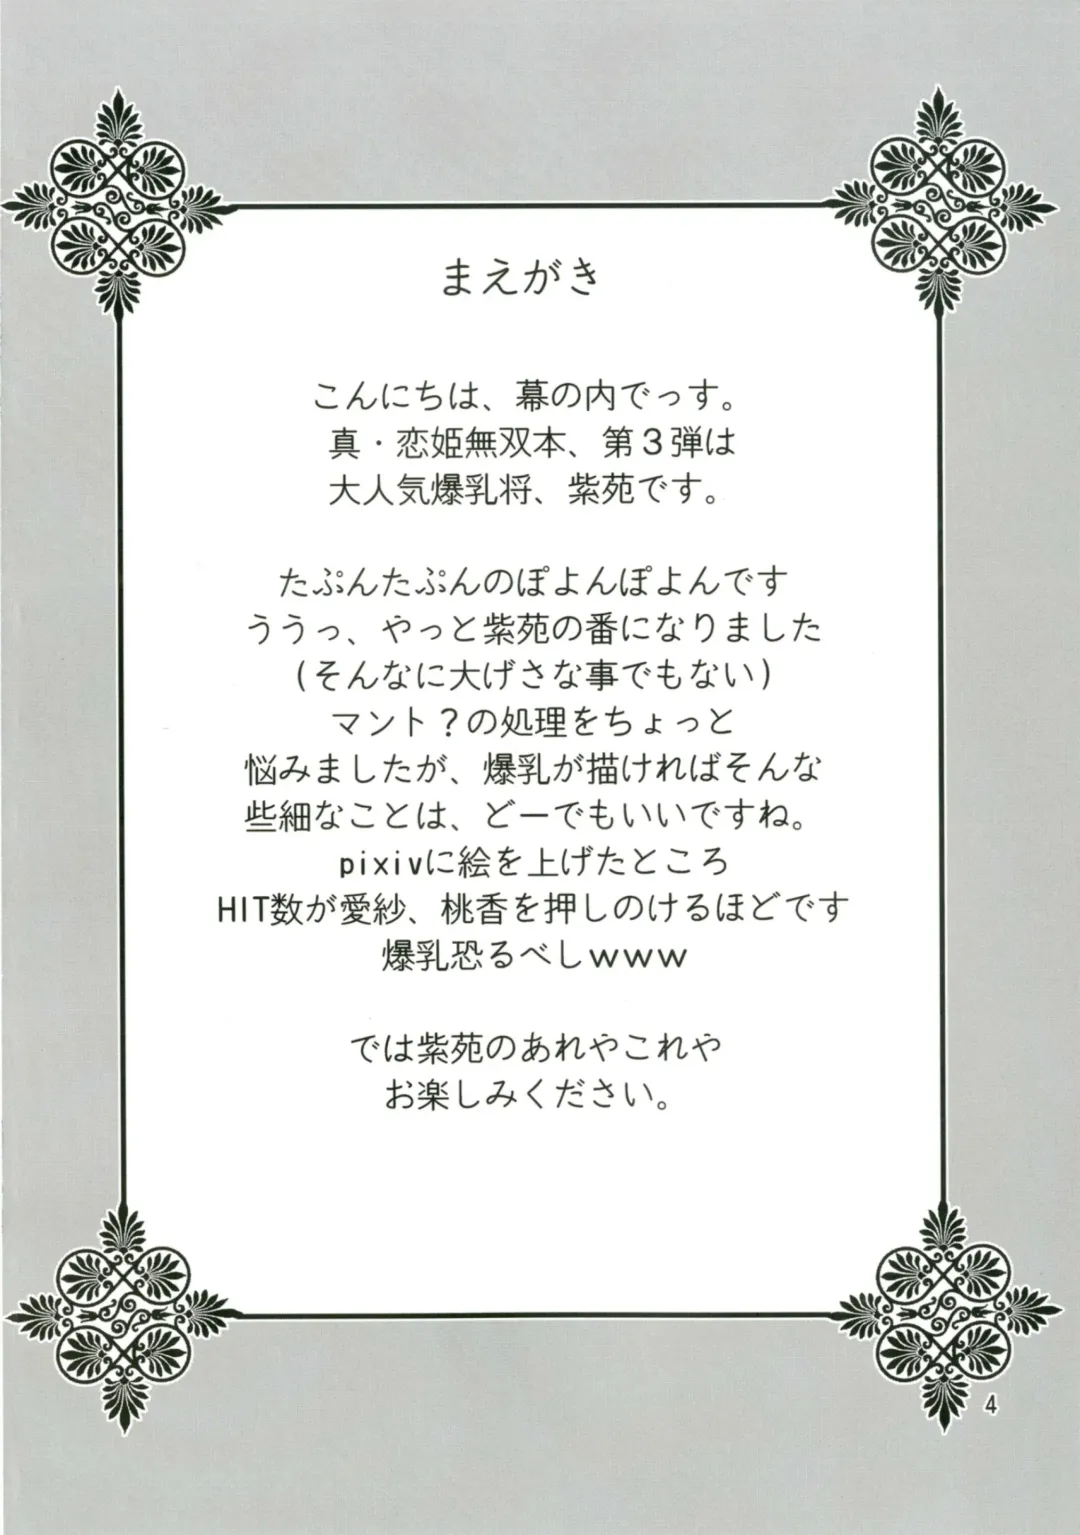 まえがき
こんにちは、幕の内でっす。
真・恋姫無双本、第３弾は
大人気爆乳将、紫苑です。
たぷんたぷんのぽよんぽよんです
ううっ、やっと紫苑の番になりました
(そんなに大げさな事でもない)
マント？の処理をちょっと
悩みましたが、爆乳が描ければそんな
些細なことは、どーでもいいですね。
pixivに絵を上げたところ
HIT数が愛紗、桃香を押しのけるほどです
爆乳恐るべしｗｗｗ
では紫苑のあれやこれや
お楽しみください。
4